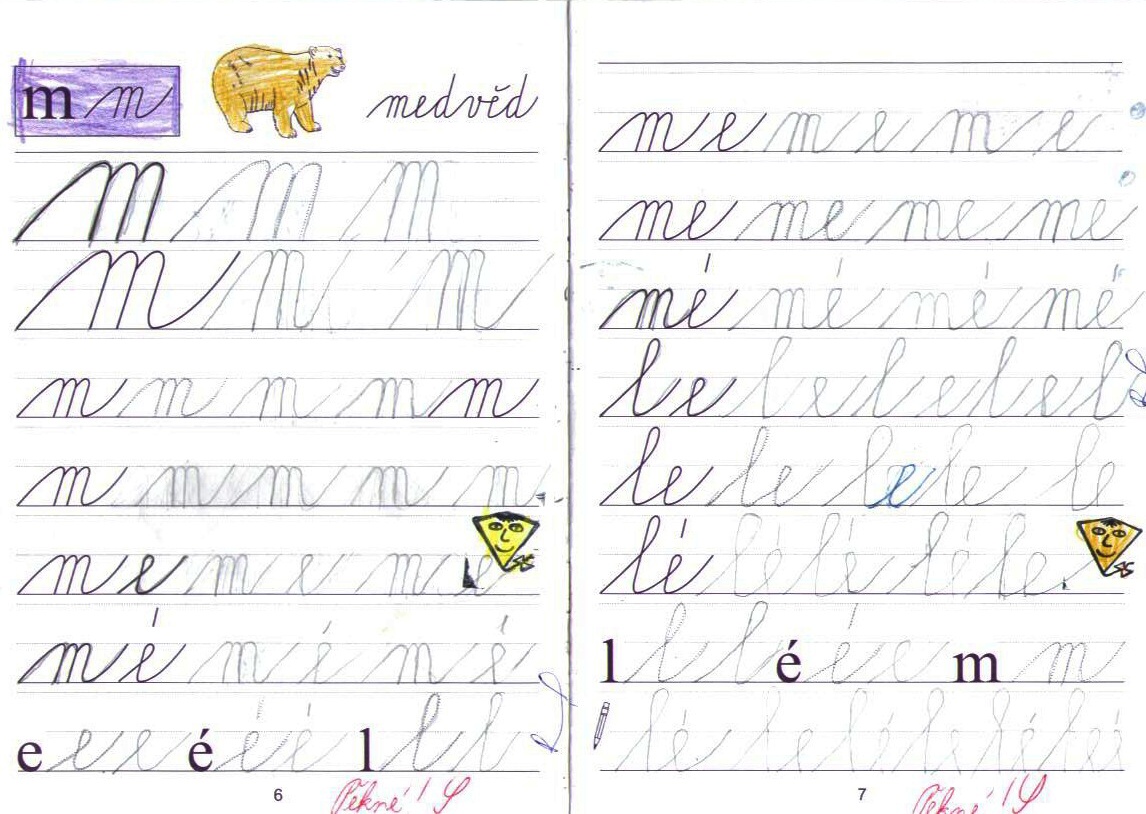 m m medvěd
m m m
m m m
m m m m m
m m m m m
m e m e m e
m é m é m é
e e e e é é é l l l
6 Pěkné! S
m e m e m e
me me me me
mé mé mé mé
l e l e l e l e l
le le le le le
lé lé lé lé le
l l l é é e m m
lé le lé lé lé lé
7 Pěkné! S